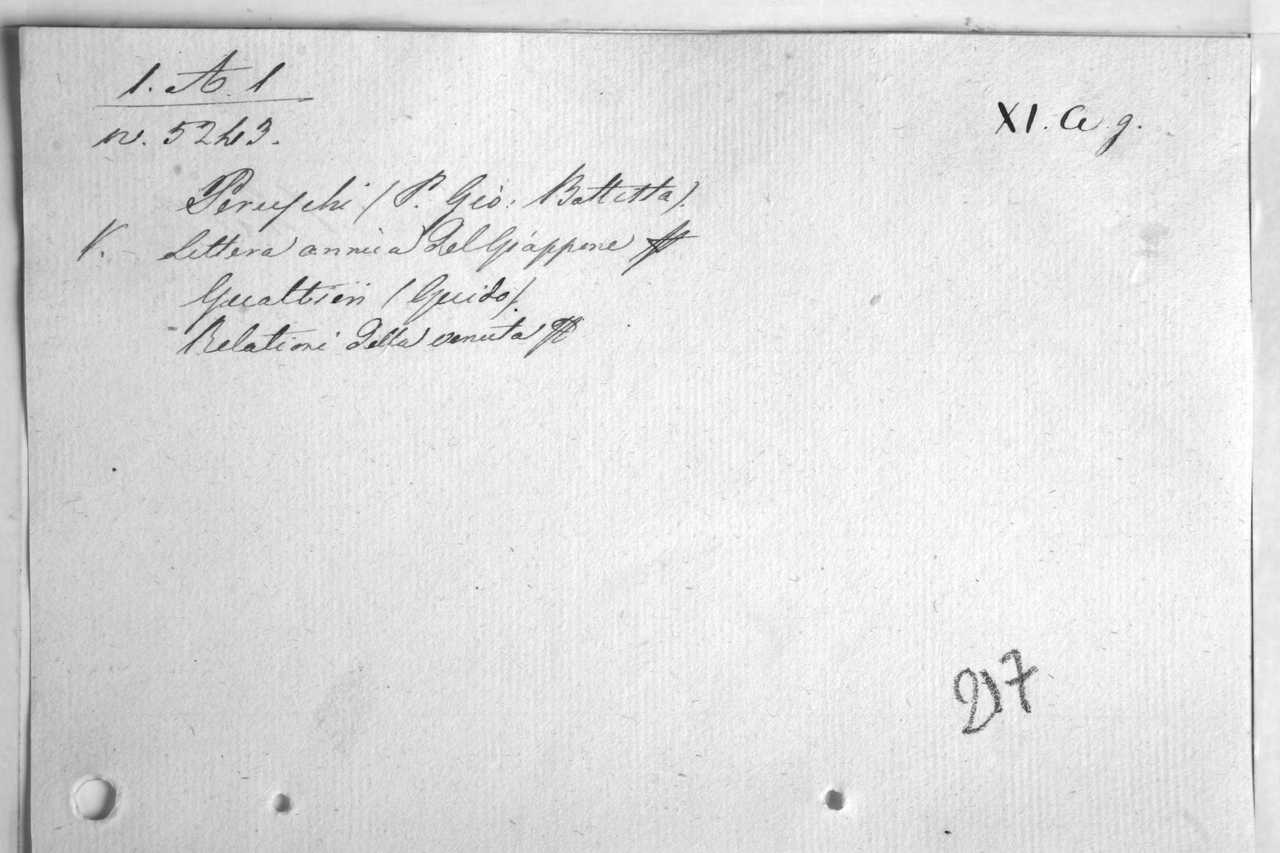 1. A. 1
n. 5243.
XI. a g.
Peruschi (P. Gio: Battista)
V. Lettera annua del Giappone
Gualtieri (Guido).
Relationi della venuta
217